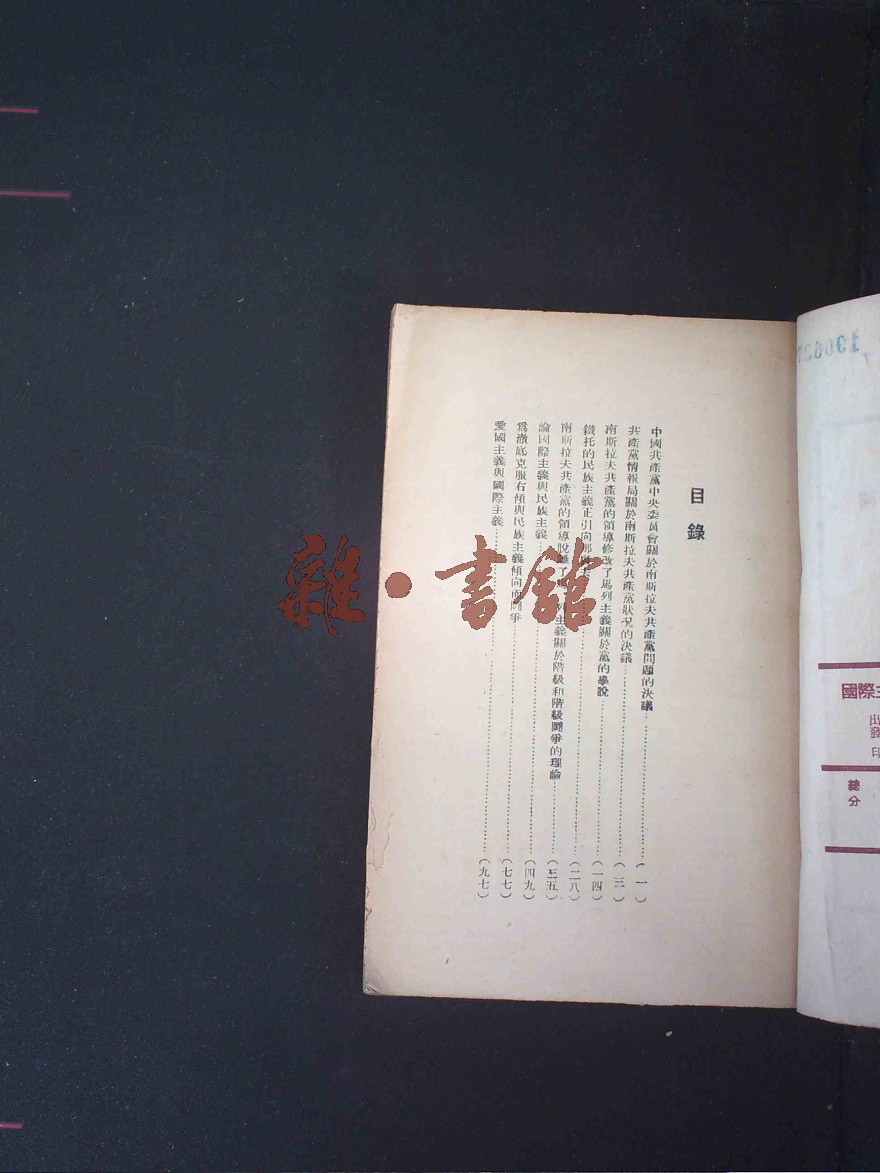 目錄
中國共產黨中央委員會關於南斯拉夫共產黨問題的決議……(一)
共產黨情報局關於南斯拉夫共產黨狀況的決議……(三)
南斯拉夫共產黨的領導修改了馬列主義關於黨的學說……(一四)
鐵托的民族主義正引向那……(二八)
南斯拉夫共產黨的領導脫離了列主義關於階級和階級鬭爭的理論……(三五)
論國際主義與民族主義……(四九)
爲澈底克服右傾與民族主義傾向而鬭爭……(七七)
愛國主義與國際主義……(九七)
雜·書館
國際主
出
發
印
總
分